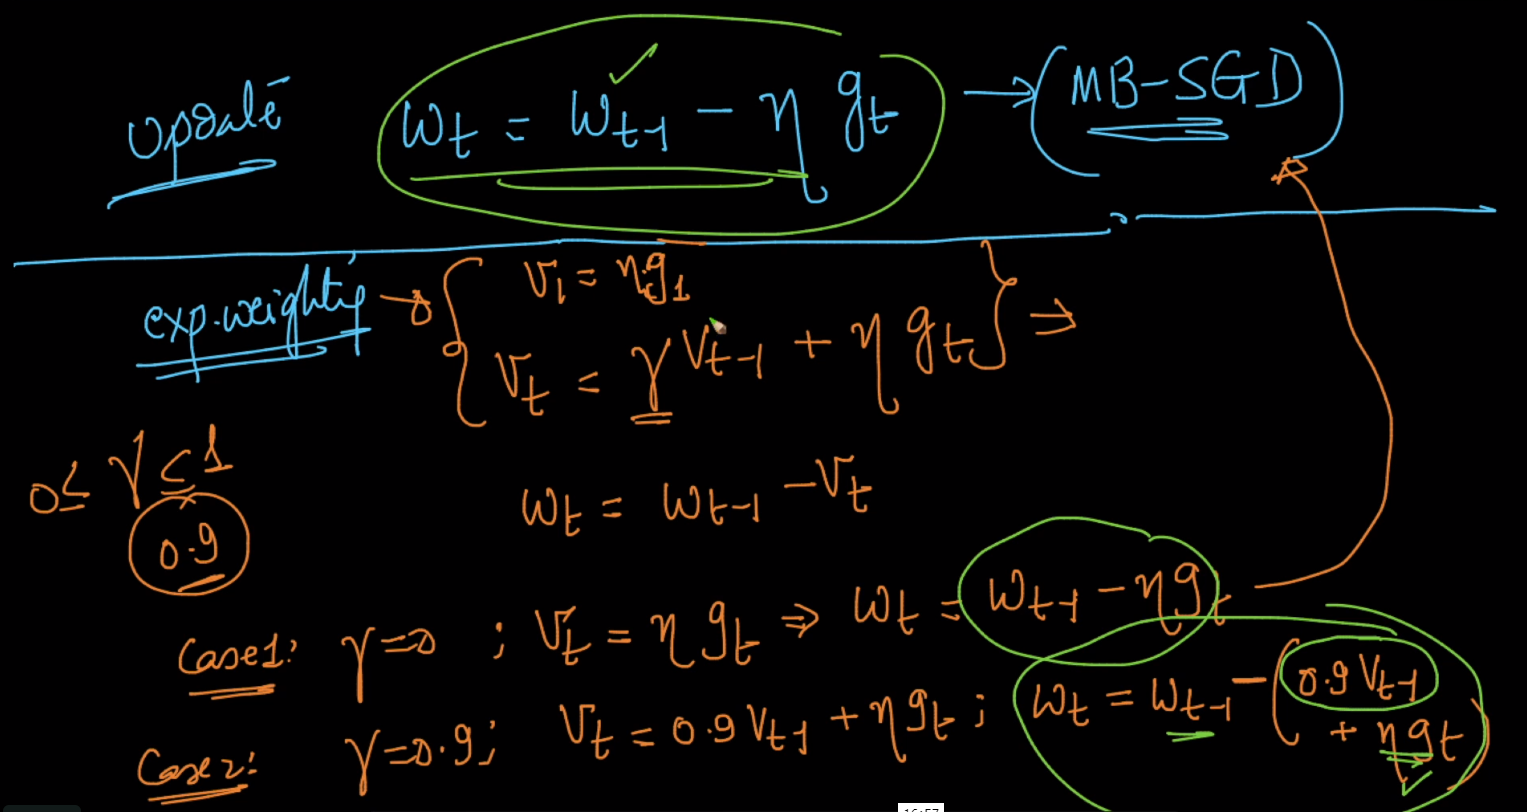 update w_t = w_{t-1} - η g_t → (MB-SGD)
exp. weightig → { v_1 = η.g_1
v_t = γ v_{t-1} + η g_t } ⇒
0 ≤ γ ≤ 1
0.9
w_t = w_{t-1} - v_t
Case1: γ=0 ; v_t = η g_t ⇒ w_t = w_{t-1} - η g_t
Case2: γ=0.9; v_t = 0.9 v_{t-1} + η g_t ; w_t = w_{t-1} - (0.9 v_{t-1}
+ η g_t)